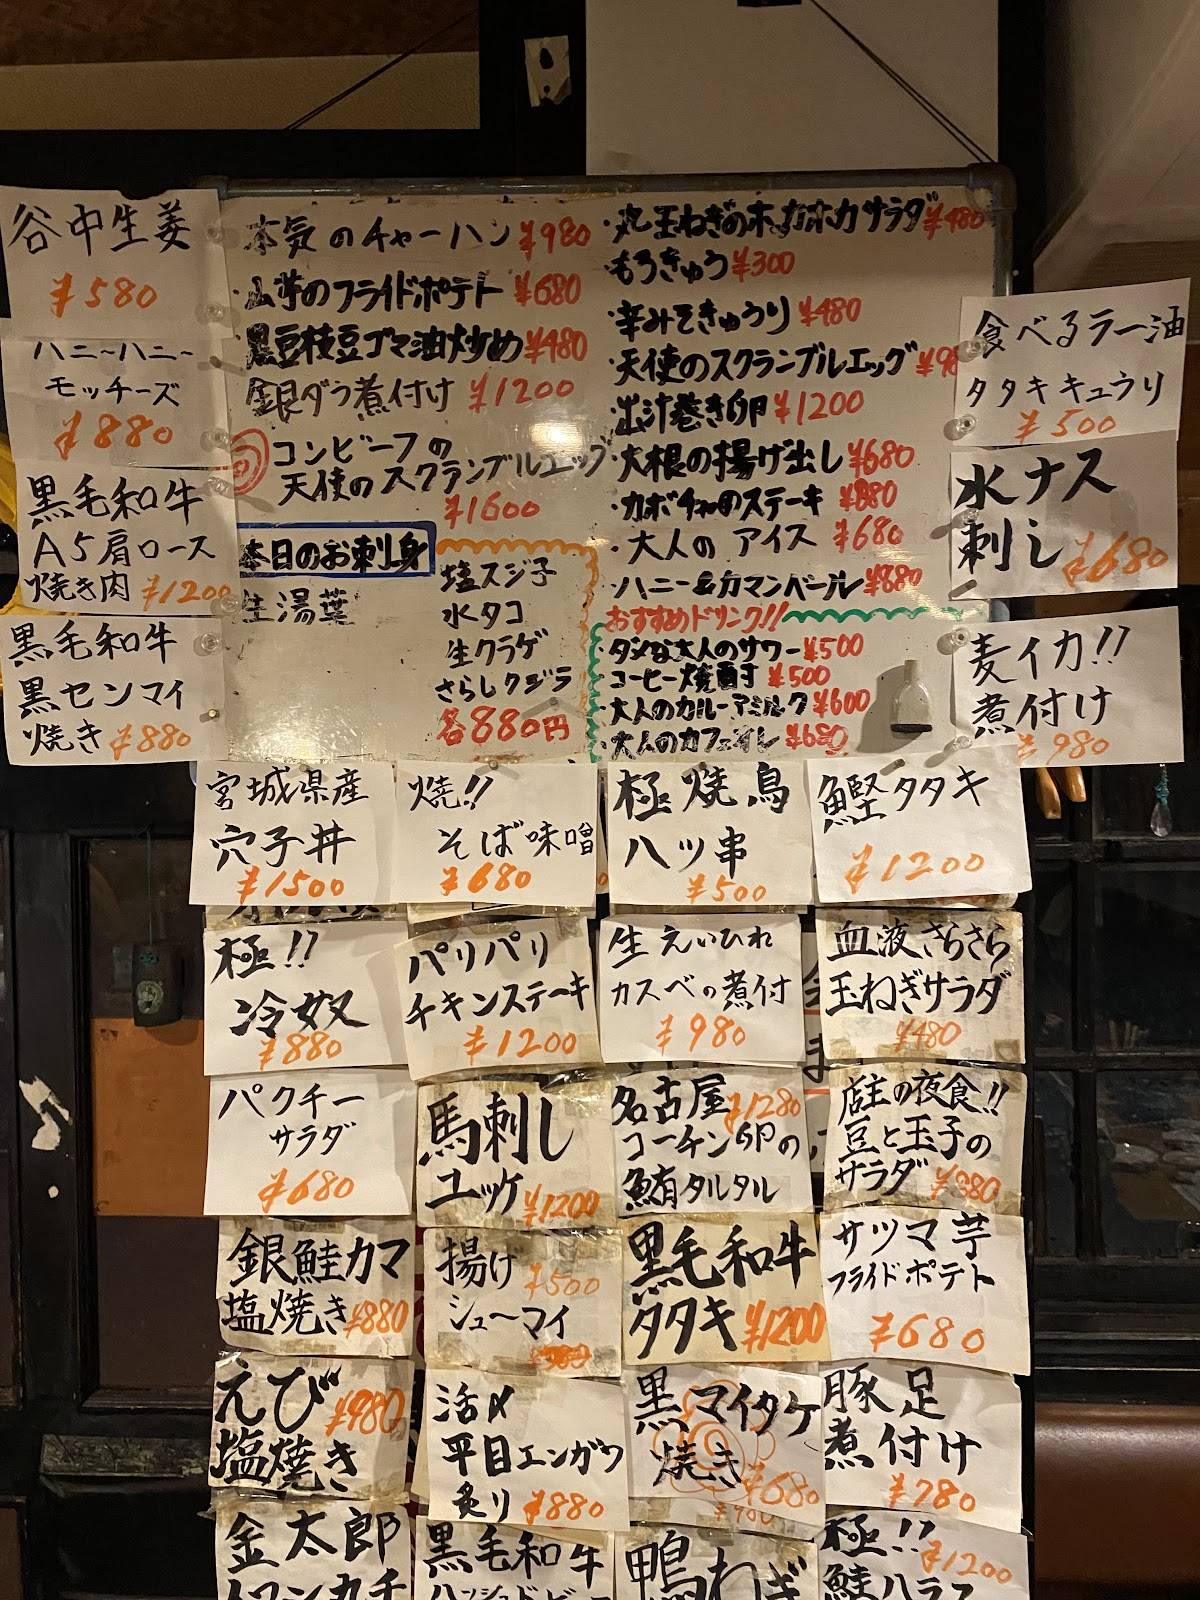 谷中生姜
¥580
ハニ〜ハニ〜
モッチーズ
¥880
黒毛和牛
A5肩ロース
焼き肉 ¥1200
黒毛和牛
黒センマイ
焼き ¥880
本気のチャーハン ¥980
・山芋のフライドポテト ¥680
・黒豆枝豆ゴマ油炒め ¥480
銀ダラ煮付け ¥1200
コンビーフの
天使のスクランブルエッグ
¥1600
本日のお刺身
生湯葉
塩スジ子
水タコ
生クラゲ
さらしクジラ
各880円
・丸玉ねぎの サラダ ¥480
・もろきゅう ¥300
・辛みそきゅうり ¥480
・天使のスクランブルエッグ
・出汁巻き卵 ¥1200
・大根の揚げ出し ¥680
・カボチャのステーキ ¥880
・大人のアイス ¥680
・ハニー&カマンベール ¥880
おすすめドリンク!!
・ダメな大人のサワー ¥500
・コーヒー焼酎 ¥500
・大人のカルーアミルク ¥600
・大人のカフェオレ ¥680
食べるラー油
タタキキュウリ
¥500
水ナス
刺し ¥680
麦イカ!!
煮付け
¥980
宮城県産
穴子丼
¥1500
焼!!
そば味噌
¥680
極焼鳥
ハツ串
¥500
鰹タタキ
¥1200
極!!
冷奴
¥880
パリパリ
チキンステーキ
¥1200
生えいひれ
カスベの煮付
¥980
血液さらさら
玉ねぎサラダ
¥480
パクチー
サラダ
¥680
馬刺し
ユッケ ¥1200
名古屋 ¥1280
コーチン卵の
鮪タルタル
店主の夜食!!
豆と玉子の
サラダ ¥880
銀鮭カマ
塩焼き ¥880
揚げ ¥500
シュ〜マイ
黒毛和牛
タタキ ¥1200
サツマ芋
フライドポテト
¥680
えび ¥980
塩焼き
活〆
平目エンガワ
炙り ¥880
黒マイタケ
焼き ¥680
豚足
煮付け
¥780
金太郎
黒毛和牛
鴨ねぎ
極!! ¥1200
鮭ハラス